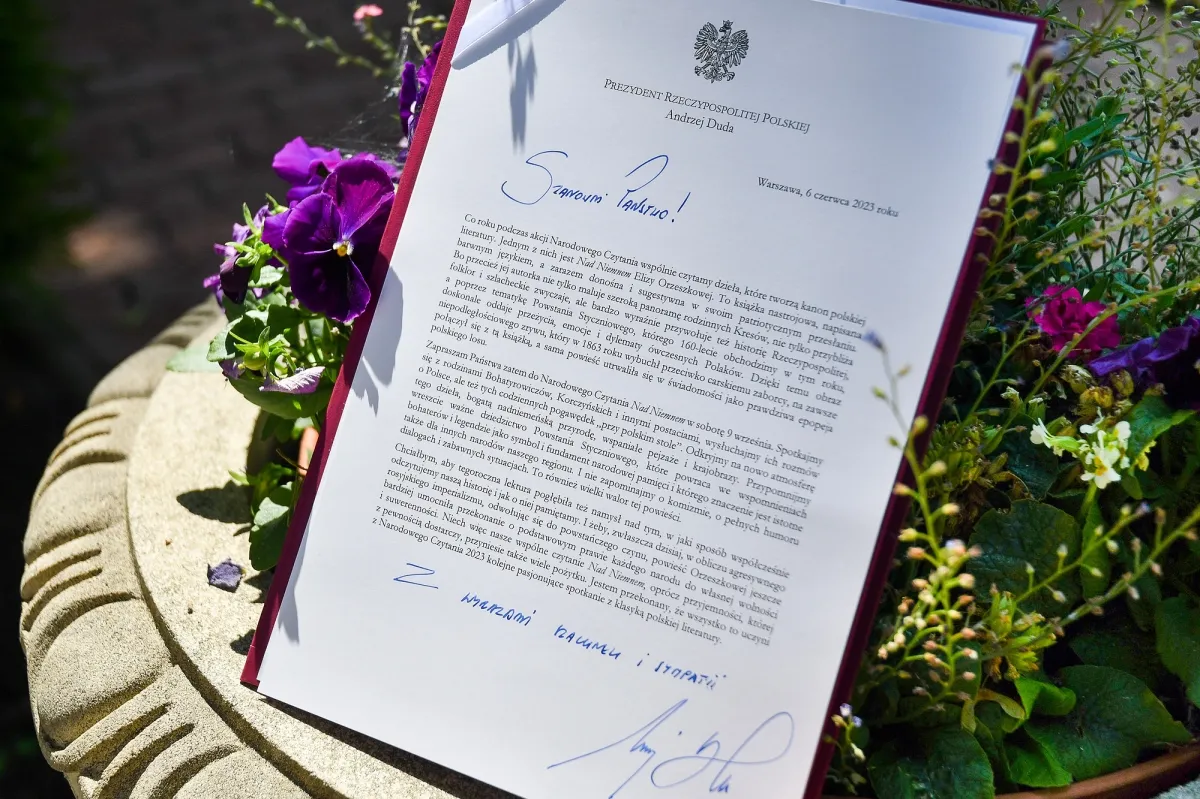 PREZYDENT RZECZYPOSPOLITEJ POLSKIEJ
Andrzej Duda
Warszawa, 6 czerwca 2023 roku
Szanowni Państwo!
Co roku podczas akcji Narodowego Czytania wspólnie czytamy dzieła, które tworzą kanon polskiej
literatury. Jednym z nich jest Nad Niemnem Elizy Orzeszkowej. To książka nastrojowa, napisana
barwnym językiem, a zarazem donośna i sugestywna w swoim patriotycznym przesłaniu.
Bo przecież jej autorka nie tylko maluje szeroką panoramę rodzinnych Kresów, nie tylko przybliża
folklor i szlacheckie zwyczaje, ale bardzo wyraźnie przywołuje też historię Rzeczypospolitej,
a poprzez tematykę Powstania Styczniowego, którego 160-lecie obchodzimy w tym roku,
doskonale oddaje przeżycia, emocje i dylematy ówczesnych Polaków. Dzięki temu obraz
niepodległościowego zrywu, który w 1863 roku wybuchł przeciwko carskiemu zaborcy, na zawsze
połączył się z tą książką, a sama powieść utrwaliła się w świadomości jako prawdziwa epopeja
polskiego losu.
Zapraszam Państwa zatem do Narodowego Czytania Nad Niemnem w sobotę 9 września. Spotkajmy
się z rodzinami Bohatyrowicz, Korczyńskich i innymi postaciami, wysłuchajmy ich rozmów
o Polsce, ale też tych codziennych pogawędek „przy polskim stole”. Odkryjmy na nowo atmosferę
tego dzieła, bogatą nadniemeńską przyrodę, wspaniałe pejzaże i krajobrazy. Przypomnijmy
wreszcie ważne dziedzictwo Powstania Styczniowego, które powraca we wspomnieniach
bohaterów i legendzie jako symbol i fundament narodowej pamięci i którego znaczenie jest istotne
także dla innych narodów naszego regionu. I nie zapominajmy o komizmie, o pełnych humoru
dialogach i zabawnych sytuacjach. To również wielki walor tej powieści.
Chciałbym, aby tegoroczna lektura pogłębiła też namysł nad tym, w jaki sposób współcześnie
odczytujemy naszą historię i jak o niej pamiętamy. I żeby, zwłaszcza dzisiaj, w obliczu agresywnego
rosyjskiego imperializmu, odwołując się do powstańczego czynu, powieść Orzeszkowej jeszcze
bardziej umocniła przekonanie o podstawowym prawie każdego narodu do własnej wolności
i suwerenności. Niech więc nasze wspólne czytanie Nad Niemnem, oprócz przyjemności, której
z pewnością dostarczy, przyniesie także wiele pożytku. Jestem przekonany, że wszystko to uczyni
z Narodowego Czytania 2023 kolejne pasjonujące spotkanie z klasyką polskiej literatury.
Z wyrazami szacunku i sympatii